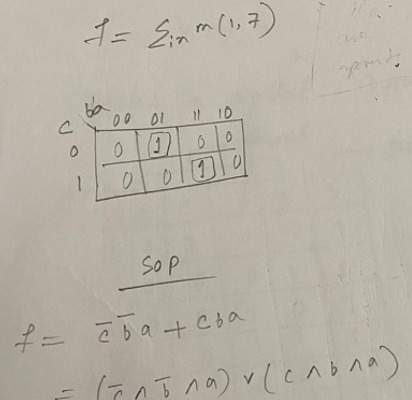 f = Σin m(1,7)
ba
c 00 01 11 10
0 0 1 0 0
1 0 0 1 0
SOP
f = c̅ b̅ a + cba
= (c̅ ∧ b̅ ∧ a) ∨ (c ∧ b ∧ a)